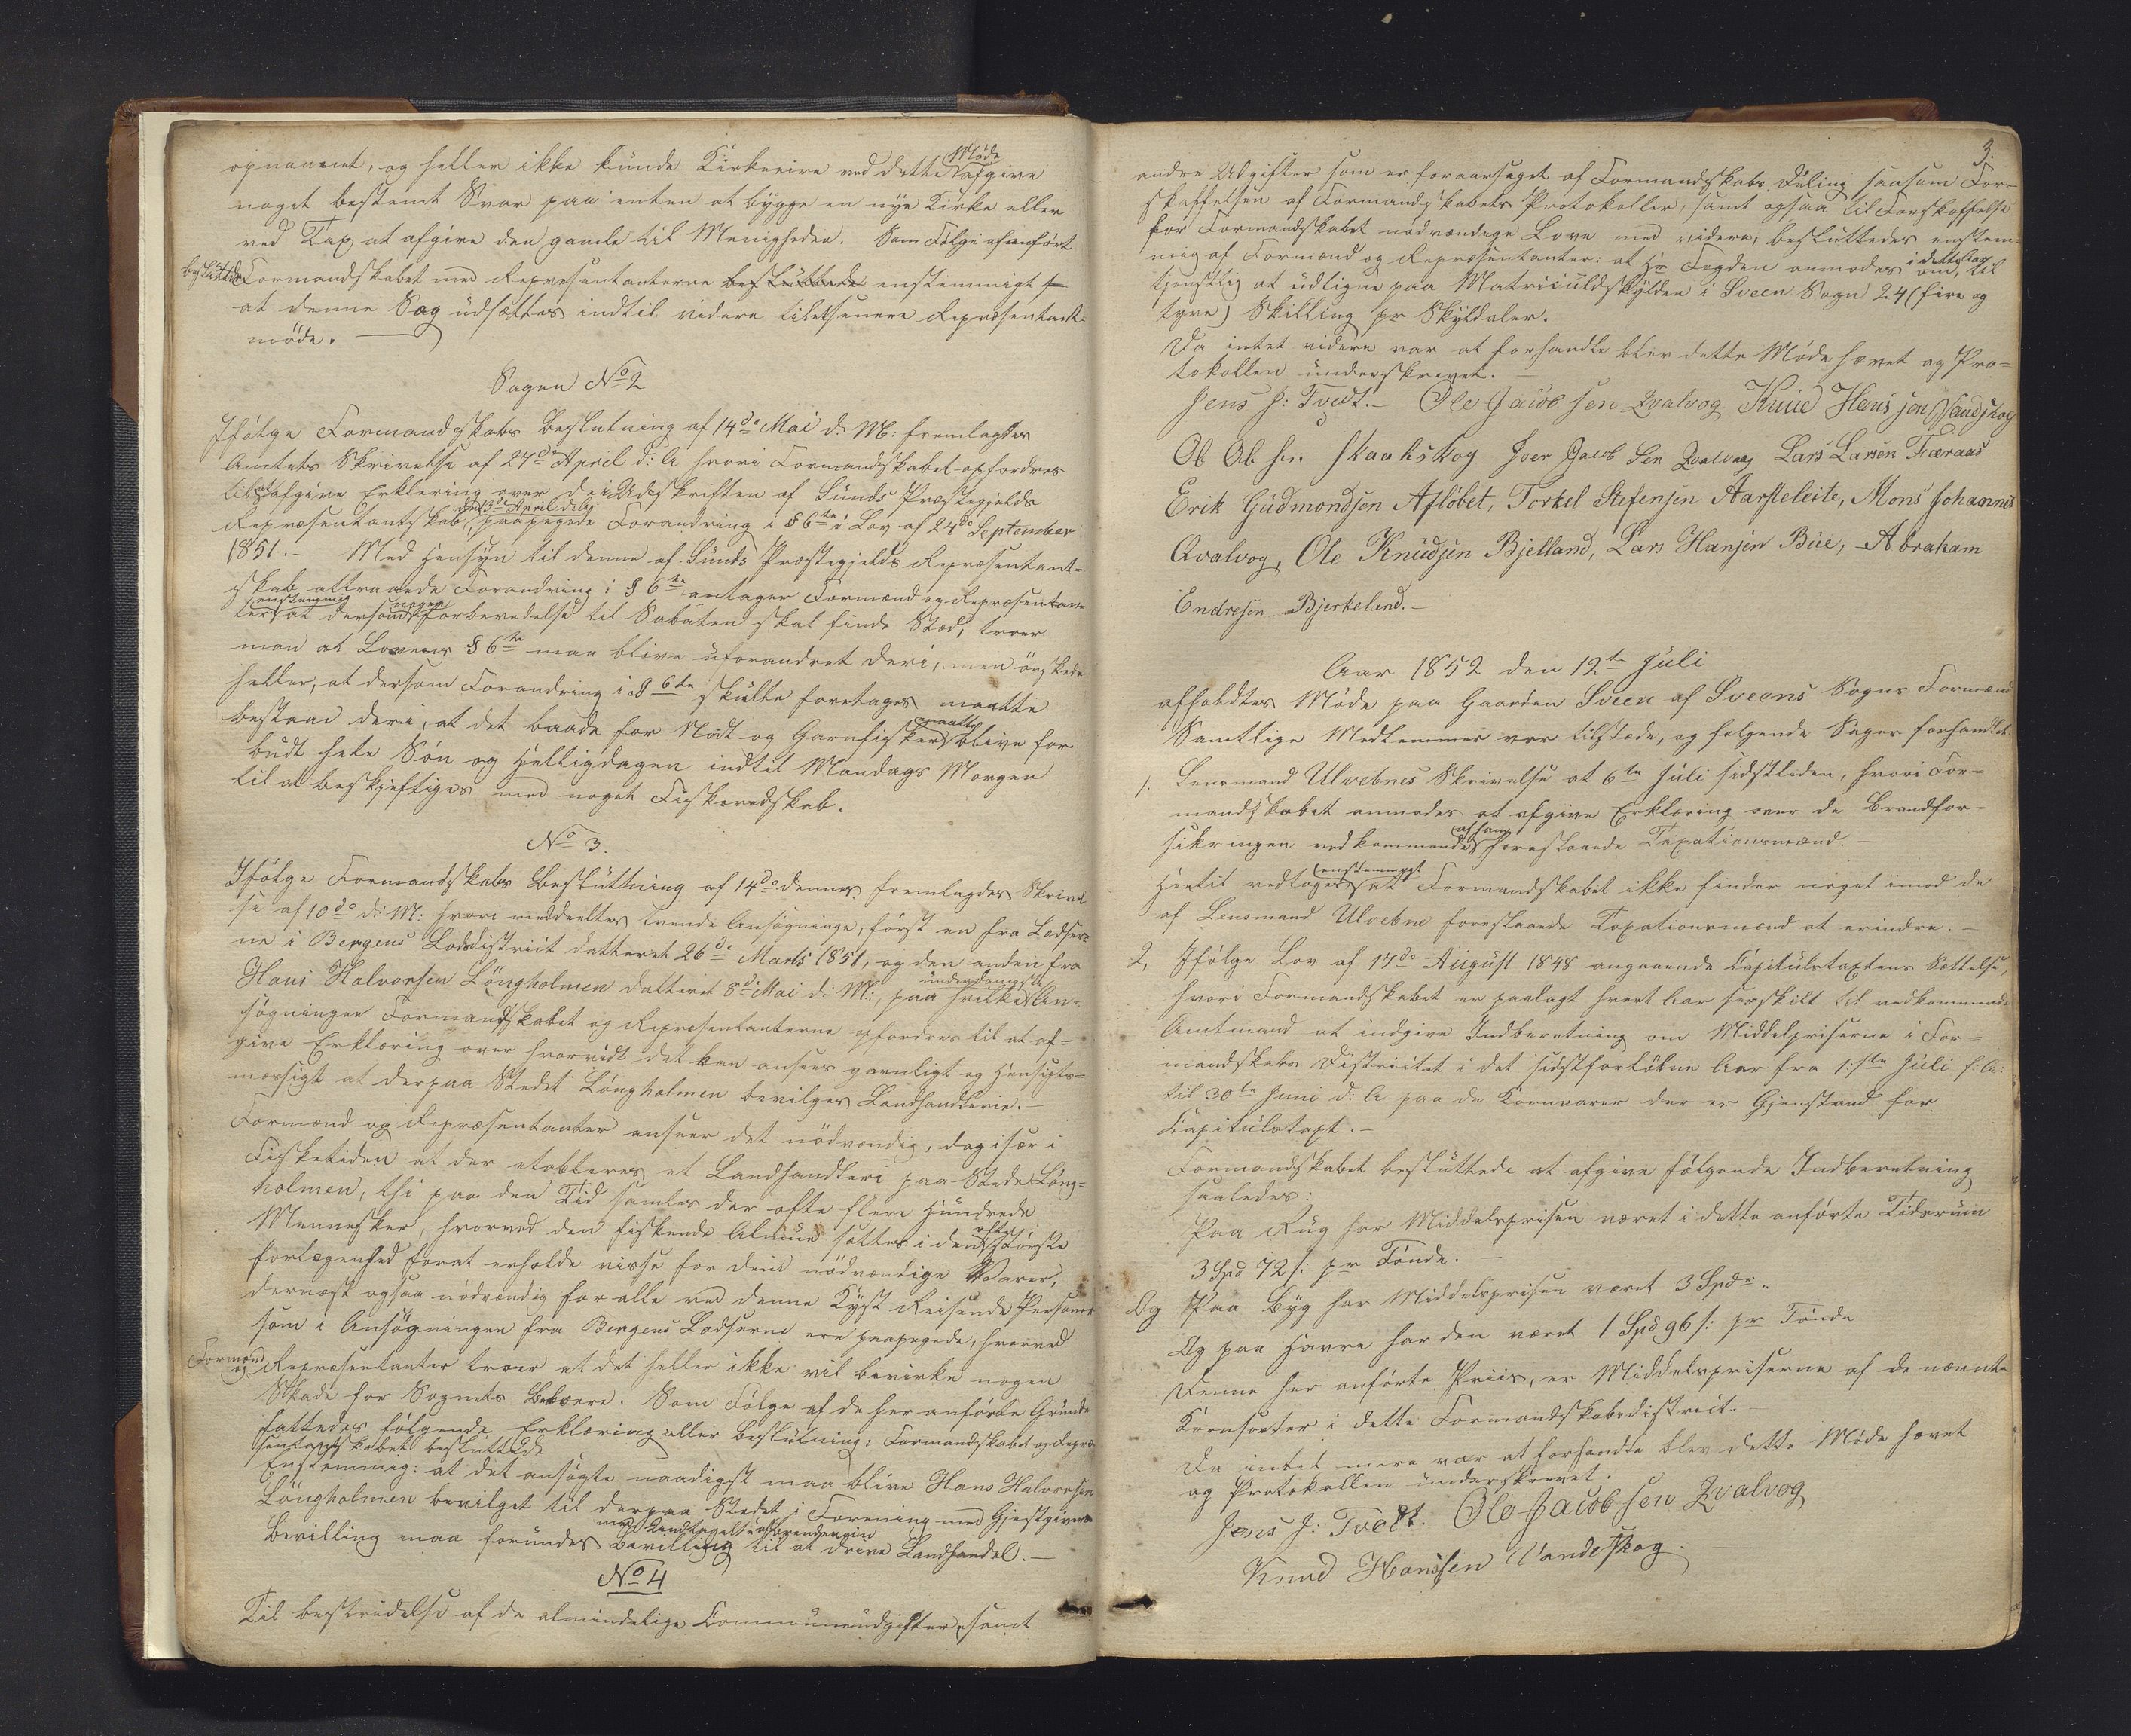 opnaaet, og heller ikke kunde Kirkeeire ved dette Møde afgive
noget bestemt Svar paa enten at bygge en nye Kirke eller
ved Tax at afgive den gamle til Menigheden. Som Følge af anført
besluttede Formandskabet med Repræsentanterne besluttede enstemmigt
at denne Sag udsættes indtil videre til et senere Repræsentant-
møde.
Sagen No 2
Ifølge Formandskabs Beslutning af 14de Mai d: M: fremlagdes
Amtets Skrivelse af 27de April d: A hvori Formandskabet opfordres
til at afgive Erklering over de i Udskriften af Sunds Præstegjelds
Repræsentantskab den 13de April d: A: paapegede Forandring i § 6te i Lov af 24de September
1851.- Med Hensyn til denne af Sunds Præstegjelds Repræsentant-
skab attraaede Forandring i § 6te antager Formænd og Repræsentan-
ter enstemmig at dersom nogen forberedelse til Sabaten skal finde Sted, troer
man at Lovens § 6te maa blive uforandret deri, men ønskede
heller, at dersom Forandring i § 6te skulle foretages maatte
bestaae deri, at det baade for Nodt og Garnfisker maatte blive for
budt hele Søn og Helligdagen indtil Mandags Morgen
til at beskjeftiges med noget Fiskeredskab.
No 3.
Ifølge Formandskabs Beslutning af 14de dennes fremlagdes Skrivel
se af 10de d: M: hvori meddeeltes tvende Ansøgninge, først en fra Lodser-
ne i Bergens Lodsdistrict datteret 26de Marts 1851, og den anden fra
Hans Halvorsen Løngholmen datteret 8de Mai d: M:, paa hvilke underdanigste An-
søgninger Formandskabet og Repræsentanterne opfordres til at af-
give Erklæring over hvorvidt det kan ansees gavnligt og Hensigts-
mæssigt at derpaa Stedet Løngholmen bevilges Landhandlerie.-
Formænd og Repræsentanter anseer det nødvendig, dog især i
Fisketiden at der etableres et Landhandleri paa Stedet Løng-
holmen, thi paa den Tid samles der ofte flere Hundrede
Mennesker, hvorved den fiskende Almue sættes i den ofte største
forlegenhed forat erholde visse for dem nødvendige Varer,
dernæst ogsaa nødvendig for alle ved denne Kyst Reisende Personer
som i Ansøgningen fra Bergens Lodserne ere paapegede, hvorved
Formænd og Repræsentanter troer at det heller ikke vil bevirke nogen
Skade for Sognets Beboere. Som Følge af de her anførte Grunde
fattedes følgende Erklæring eller Beslutning: Formandskabet og Repræ-
sentantskabet besluttede
Enstemmig: at det ansøgte naadigst maa blive Hans Halvorsen
Løngholmen bevilget til derpaa Stedet i Forening med Gjestgiver-
Bevilling maa forundes Bevilling til at drive Landhandel.-
No 4
Til bestridelse af de almindelige Communeudgifter, samt
3.
andre Udgifter som er foraarsaget af Formandskabs Deling saasom For-
skaffelsen af Formandskabets Protokoller, samt ogsaa til Forskaffelse
for Formandskabet nødvendige Love med videre, besluttedes enstem-
mig af Formænd og Repræsentanter: at Hr Fogden anmodes i dette Aar om, til
tjenstlig at udligne paa Matriculskylden i Sveen Sogn 24 (fire og
tyve) Skilling pr Skyldaler.
Da intet videre var at forhandle blev dette Møde hævet og Pro-
tokollen underskrevet.
Jens J: Tvedt.- Ole Jacobsen Qvalvog Knud Hansen Vandskog
Ole Olsen Skaakskog Iver Jacobsen Qvalvaag Lars Larsen Færaas
Erik Gudmondsen Afløbet, Torkel Stefensen Aarsleleite, Mons Johannes
Qvalvog, Ole Knudsen Bjelland, Lars Hansen Bue, Abraham
Endresen Bjerkelund.-
Aar 1852 den 12te Juli
afholdtes Møde paa Gaarden Sveen af Sveens Sogns Formænd
Samtlige Medlemmer var tilstæde, og følgende Sager forhandlet
1. Lensmand Ulvebnes Skrivelse at 6te Juli sidstleden, hvori For-
mandskabet anmodes at afgive Erklæring over de Brandfor-
sikringen vedkommende af ham foreslaaede Taxationsmænd.-
Hertil vedtoges enstemmigt at Formandskabet ikke finder noget imod de
af Lensmand Ulvebne foreslaaede Taxationsmænd at erindre.-
2, Ifølge Lov af 17de August 1848 angaaende Capitulstaxtens Sættelse,
hvori Formandskabet er paalagt hvert Aar særskilt til vedkommende
Amtmand at indgive Indberetning om Middelpriserne i For-
mandskabs Districtet i det sidstforløbne Aar fra 1ste Juli f. A:
til 30te Juni d: A paa de Kornvarer der er Gjenstand for
Capitulstaxt.-
Formandskabet besluttede at afgive følgende Indberetning
saaledes:
Paa Rug har Middelsprisen været i dette anførte Tidsrum
3 Spd 72 s: pr Tønde.-
Og Paa Byg har Middelsprisen været 3 Spd "
Og paa Havre har den været 1 Spd 96 s: pr Tønde
Denne her anførte Priis, er Middelspriserne af de nævnte
Kornsorter i dette Formandskabsdistrict.
Da intet mere var at forhandle blev dette Møde hævet
og Protokollen underskrevet.
Jens J: Tvedt. Ole Jacobsen Qvalvog
Knud Hanssen Vandeskog.